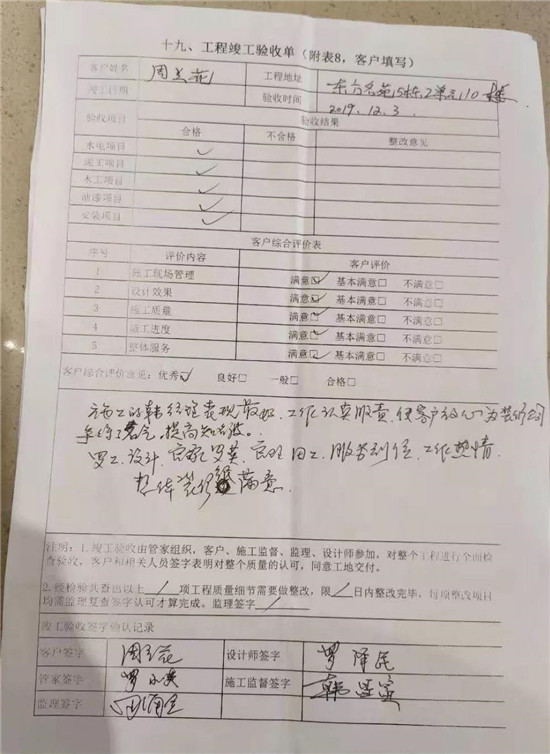 十九、工程竣工验收单（附表8，客户填写）
客户姓名 周 工程地址 东方名苑15栋2单元110
竣工日期 验收时间 2019.12.3
验收项目 验收结果
合格 不合格 整改意见
水电项目 ✓
泥工项目 ✓
木工项目 ✓
油漆项目 ✓
安装项目 ✓
客户综合评价表
序号 评价内容 客户评价
1 施工现场管理 满意☑ 基本满意□ 不满意□
2 设计效果 满意☑ 基本满意□ 不满意□
3 施工质量 满意☑ 基本满意□ 不满意□
4 施工进度 满意☑ 基本满意□ 不满意□
5 整体服务 满意☑ 基本满意□ 不满意□
客户综合评价意见：优秀☑ 良好□ 一般□ 合格□
施工的韩经理表现最好，工作认真服责，使客户放心，为装修公司
提高知名度。
罗工设计，管家罗英，监理周工，服务到位，工作热情，
整体装修满意。
注明：1.竣工验收由管家组织，客户、施工监督、监理、设计师参加，对整个工程进行全面检
查验收，客户和相关人员签字表明对整个质量的认可，同意工地交付。
2.经检验共查出以上 / 项工程质量细节需要做整改，限 / 日内整改完毕，每项整改项目
均需监理复查签字认可才算完成。监理签字 /
竣工验收签字确认记录
客户签字 周 设计师签字 罗泽民
管家签字 罗 施工监督签字 韩
监理签字 周